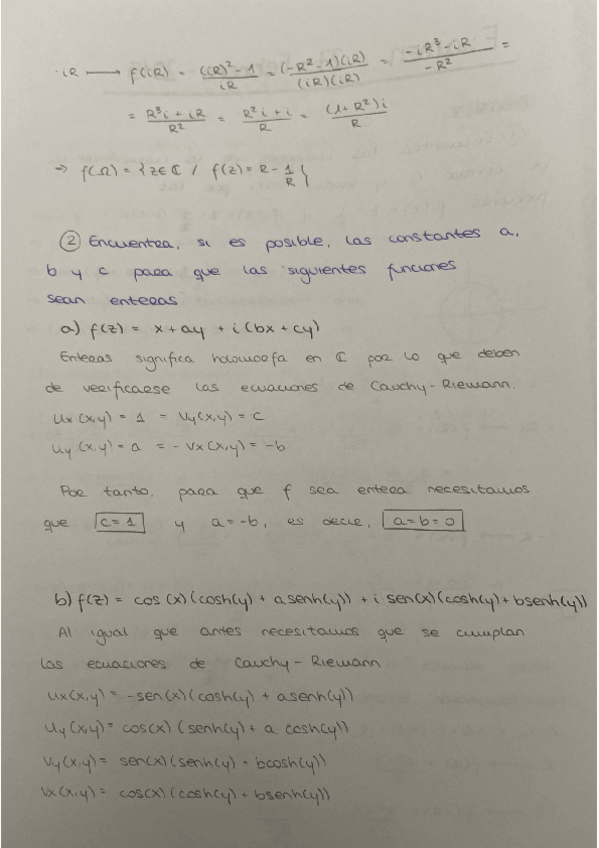 · iR ⟶ f(iR) = ((iR)² - 1)/(iR) = ((-R² - 1)(iR))/((iR)(iR)) = (-iR³ - iR)/(-R²) =
= (R³i + iR)/R² = (R²i + i)/R = ((1+R²)i)/R
⇒ f(Ω) = { z∈ℂ / f(z) = R - 1/R }
② Encuentra, si es posible, las constantes a,
b y c para que las siguientes funciones
sean enteras
a) f(z) = x + ay + i(bx + cy)
Enteras significa holomorfa en ℂ por lo que deben
de verificarse las ecuaciones de Cauchy-Riemann.
Ux(x,y) = 1 = Vy(x,y) = c
Uy(x,y) = a = -Vx(x,y) = -b
Por tanto, para que f sea entera necesitamos
que c = 1 y a = -b, es decir, a = b = 0
b) f(z) = cos(x)(cosh(y) + a senh(y)) + i sen(x)(cosh(y) + b senh(y))
Al igual que antes necesitamos que se cumplan
las ecuaciones de Cauchy-Riemann
Ux(x,y) = -sen(x)(cosh(y) + a senh(y))
Uy(x,y) = cos(x)(senh(y) + a cosh(y))
Vy(x,y) = sen(x)(senh(y) + b cosh(y))
Vx(x,y) = cos(x)(cosh(y) + b senh(y))